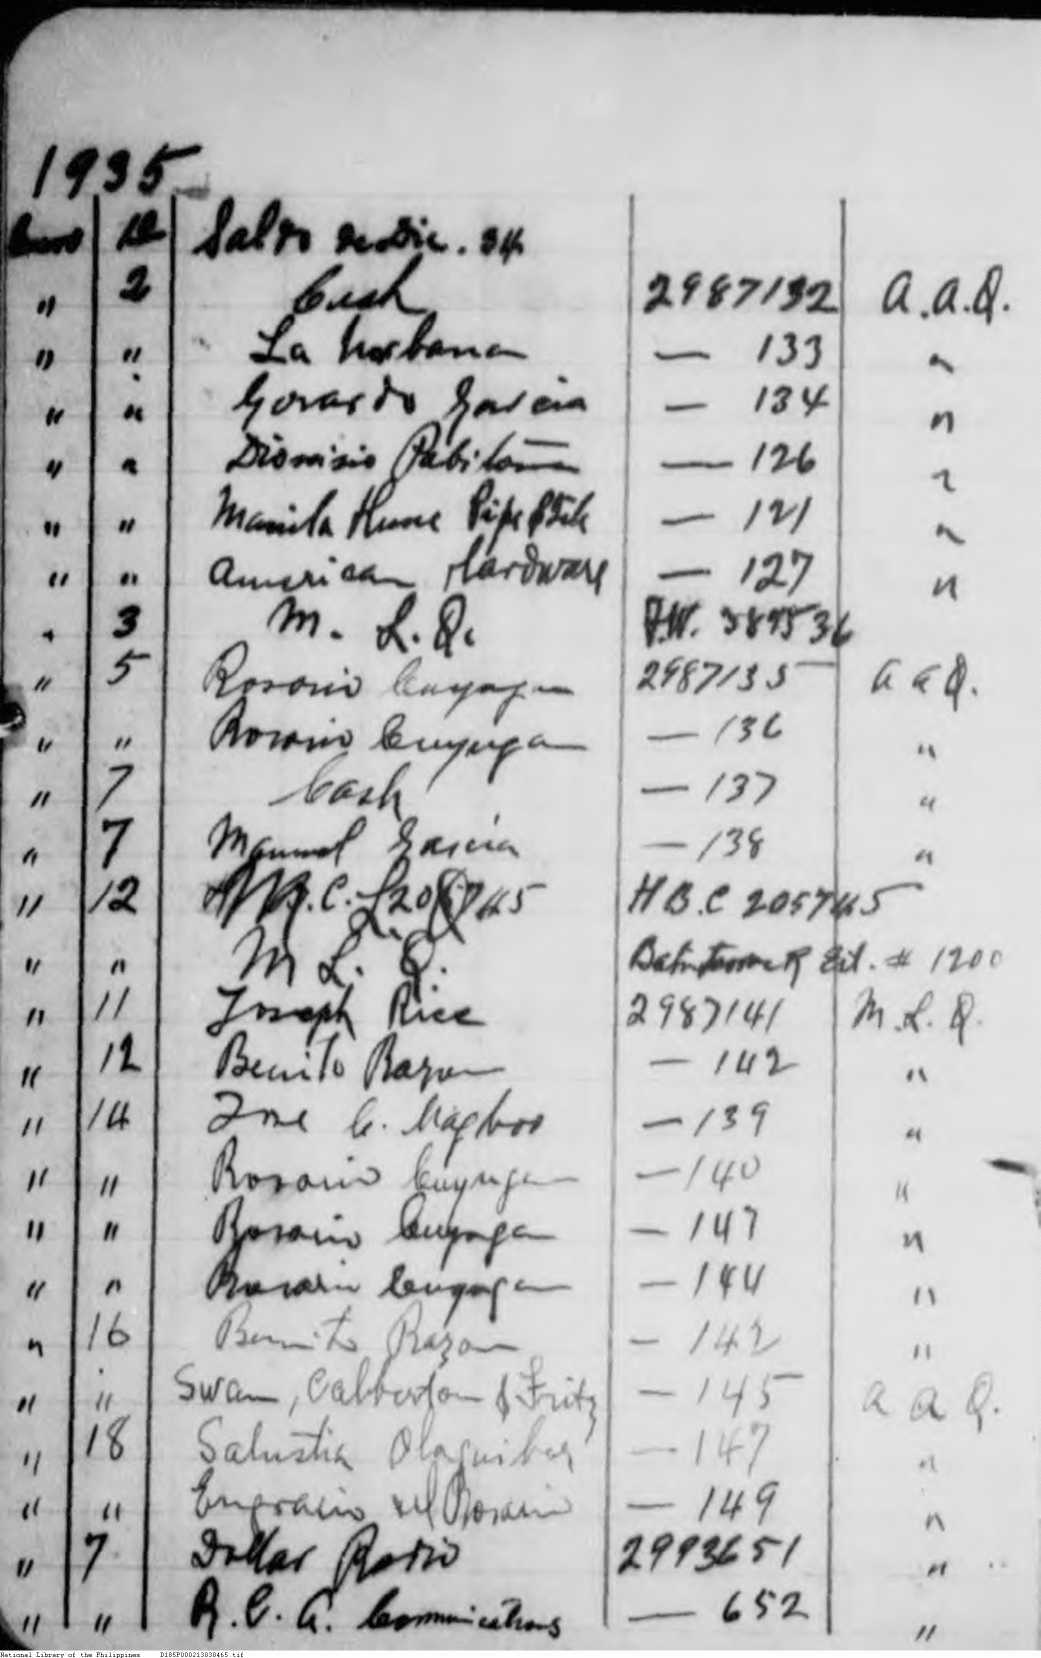 1935
Enero 1o Saldo de Dic. 34
" 2 Cash 2987132 A.A.Q.
" " La Urbana — 133 "
" " Gerardo Garcia — 134 "
" " Dionisio — 126 "
" " Manila Hume Pipe & Tile — 121 "
" " American Hardware — 127 "
" 3 M. L. Q. 36
" 5 Rosario Cuyugan 2987135 A A Q.
" " Rosario Cuyugan — 136 "
" 7 Cash — 137 "
" 7 Manuel Garcia — 138 "
" 12 H B.C 205745
" " M L. Q. Est. # 1200
" 11 Joseph Rice 2987141 M. L. Q.
" 12 Benito Razon — 142 "
" 14 Jose C. — 139 "
" " Rosario Cuyugan — 140 "
" " Rosario Cuyugan — 147 "
" " Rosario Cuyugan — 144 "
" 16 Benito Razon — 142 "
" " Swan, & Fritz — 145 A A Q.
" 18 Salustia Olaguibel — 147 "
" " Engracio del Rosario — 149 "
" 7 Dollar Radio 2993651 "
" " R. C. A. Communications — 652 "
National Library of the Philippines D185P000213830465.tif